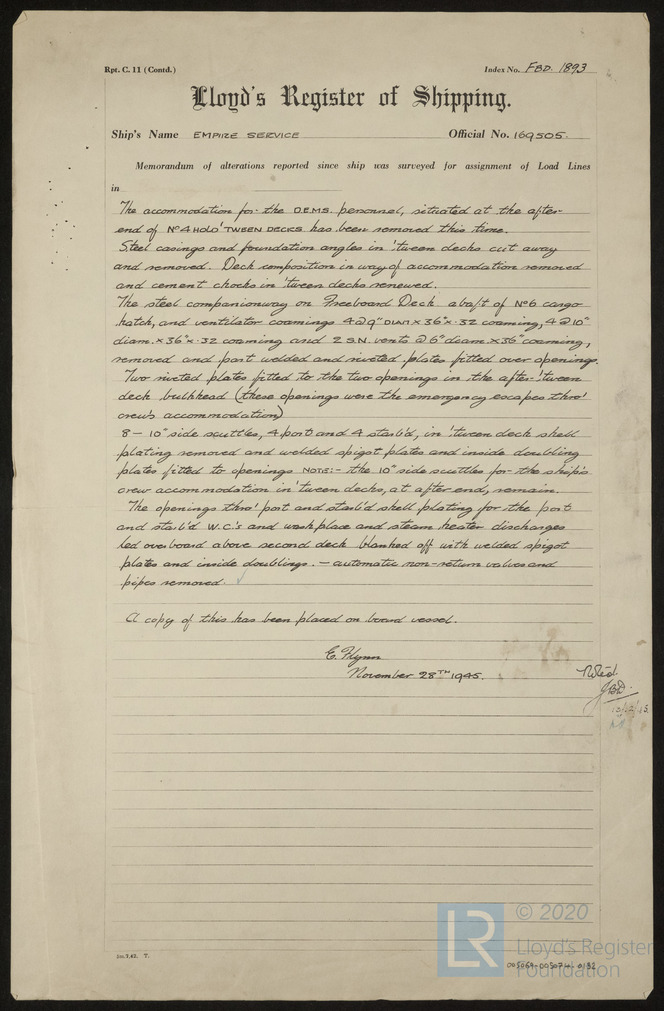 Rpt. C. 11 (Contd.)
Index No. FBD. 1893
Lloyd's Register of Shipping.
Ship's Name EMPIRE SERVICE
Official No. 169505.
Memorandum of alterations reported since ship was surveyed for assignment of Load Lines
in
The accommodation for the D.E.M.S. personnel, situated at the after-
end of No 4 HOLD 'TWEEN DECKS has been removed this time.
Steel casings and foundation angles in 'tween decks cut away
and removed. Deck composition in way of accommodation removed
and cement chocks in 'tween decks renewed.
The steel companionway on Freeboard Deck abaft of No 6 cargo
hatch, and ventilator coamings 4 @ 9" DIAM x 36" x .32 coaming, 4 @ 10"
diam. x 36" x .32 coaming and 2 S.N. vents @ 6" diam x 36" coaming,
removed and part welded and riveted plates fitted over openings.
Two riveted plates fitted to the two openings in the after 'tween
deck bulkhead (these openings were the emergency escapes thro'
crew's accommodation)
8 – 10" side scuttles, 4 port and 4 starb'd, in 'tween deck shell
plating removed and welded spigot plates and inside doubling
plates fitted to openings NOTE:- the 10" side scuttles for the ship's
crew accommodation in 'tween decks, at after end, remain.
The openings thro' port and starb'd shell plating for the port
and starb'd W.C.'s and washplace and steam heater discharges
led overboard above second deck blanked off with welded spigot
plates and inside doublings. – automatic non-return valves and
pipes removed.
A copy of this has been placed on board vessel.
E. Flynn
November 28TH 1945.
Noted
13/12/45
© 2020
LR
Lloyd's Register
Foundation
005069-005074-0132